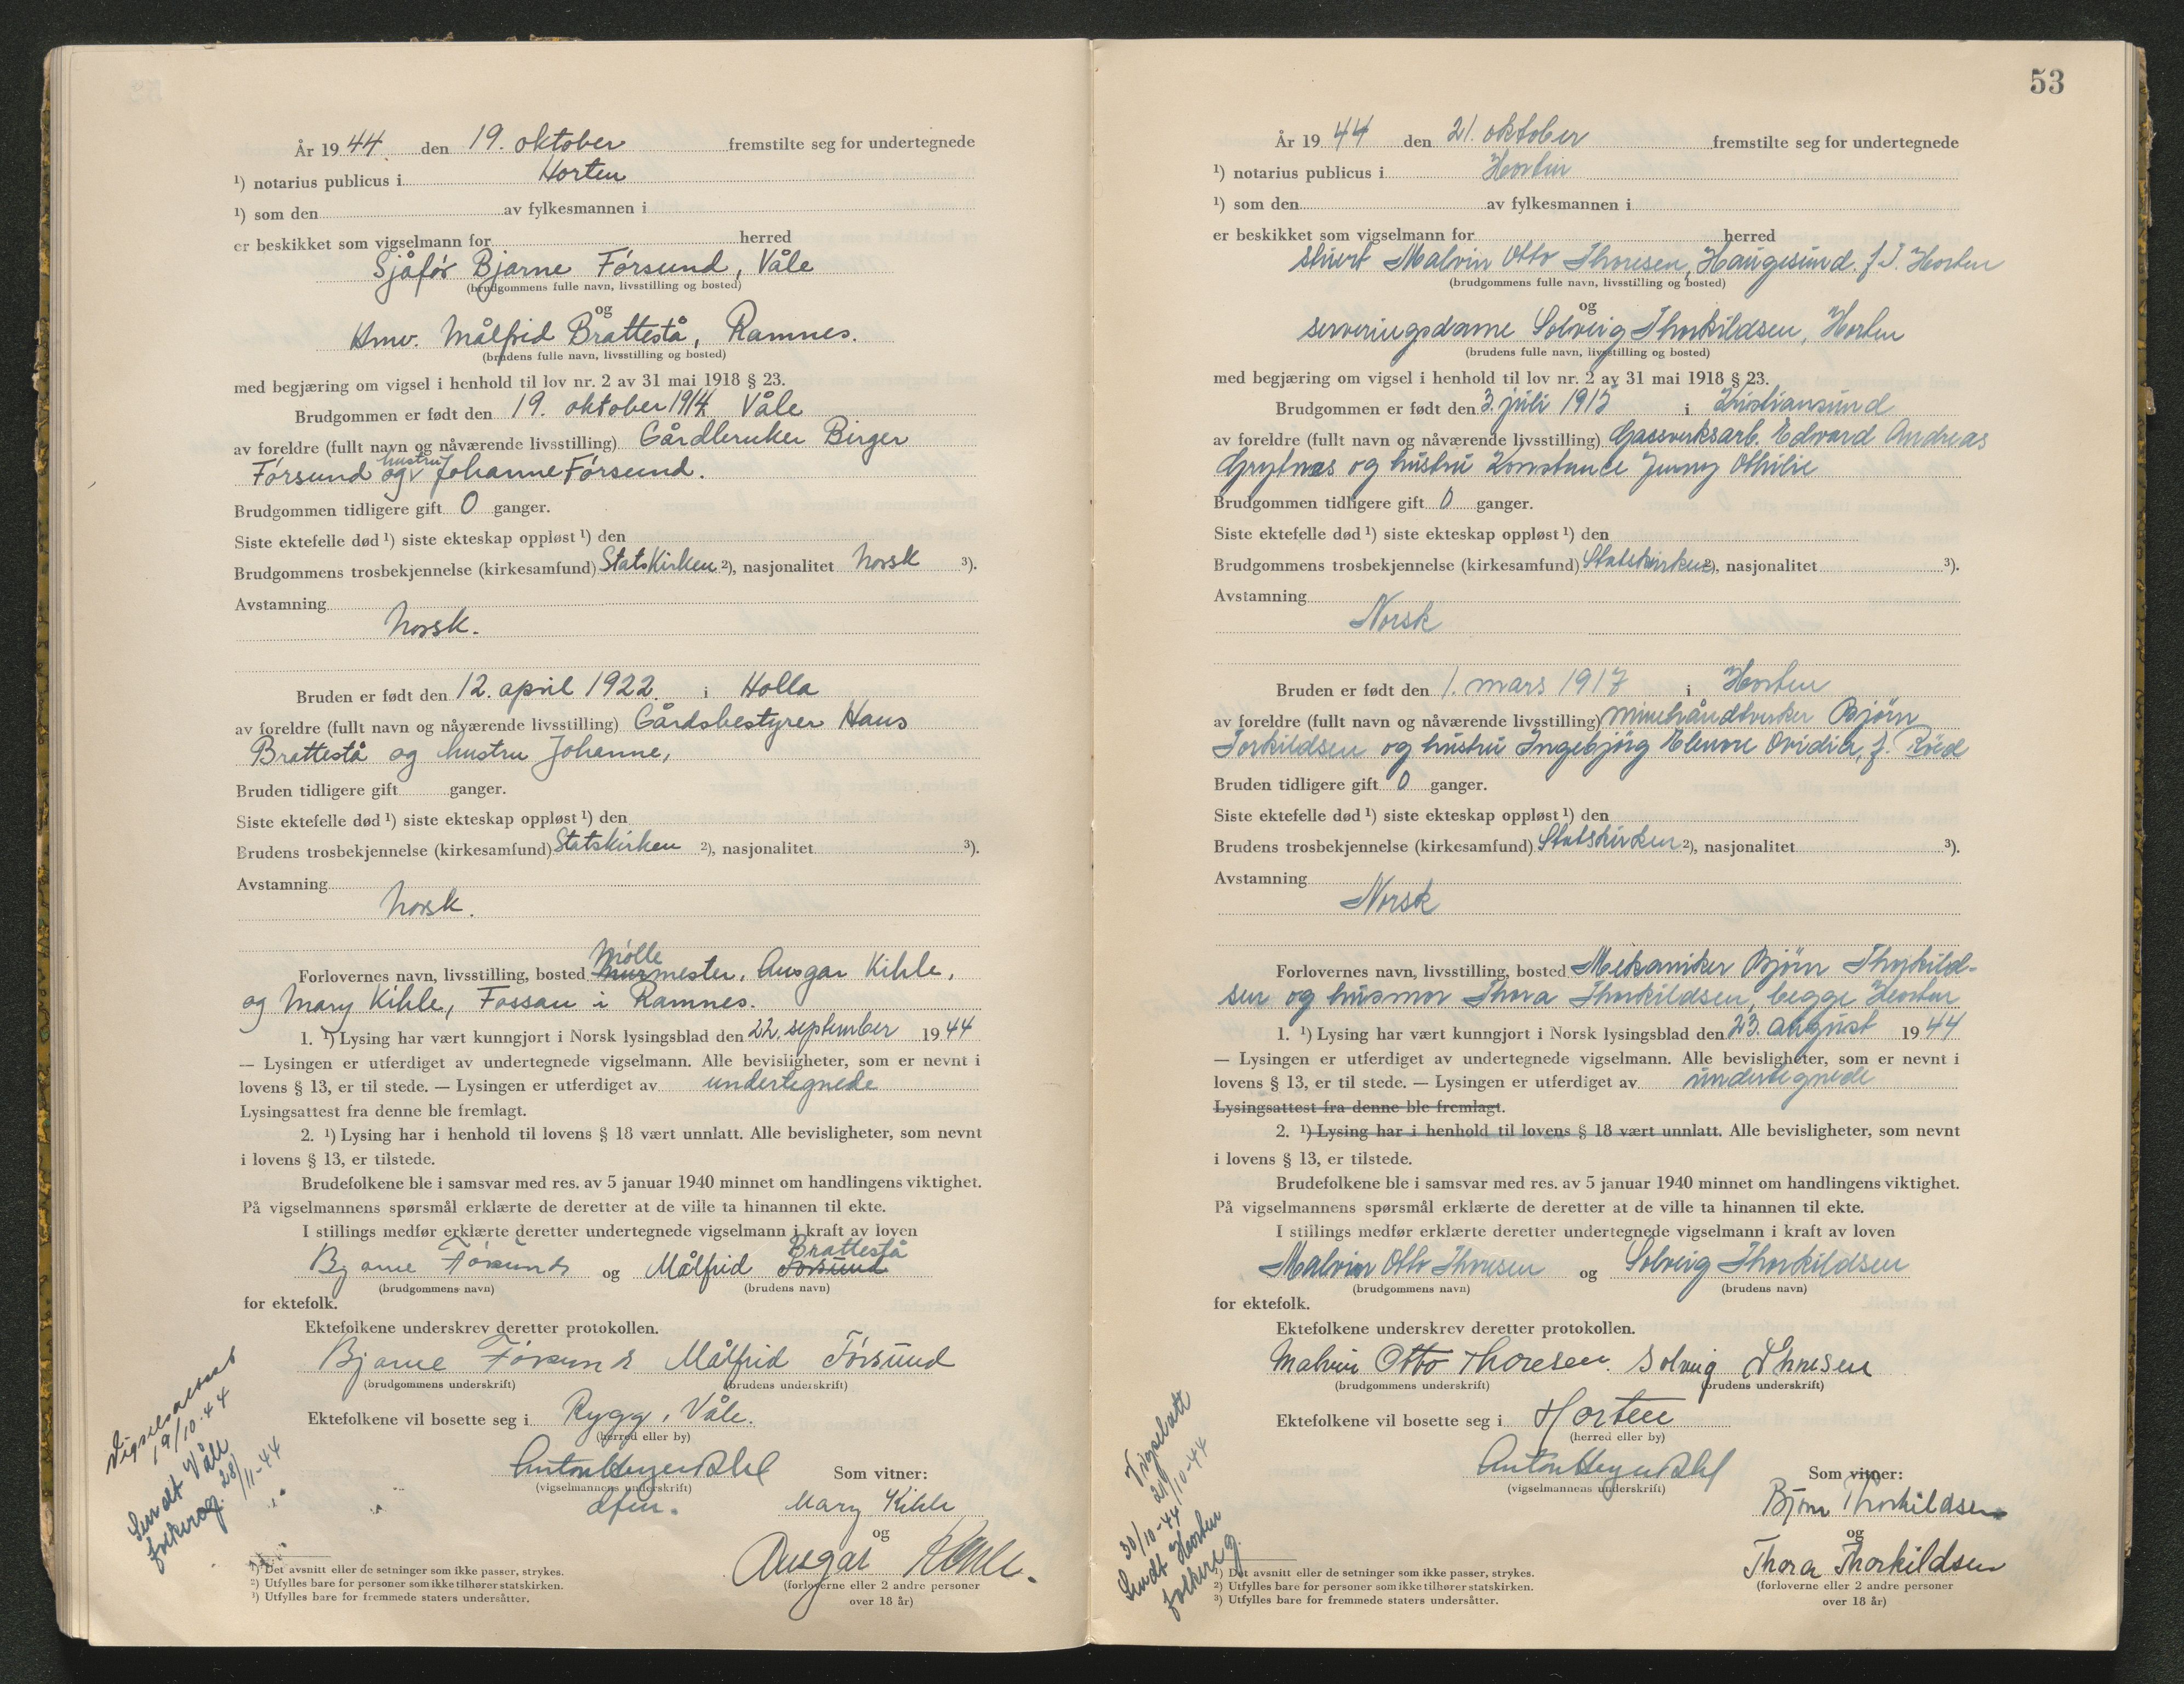 År 19 44 den 19. oktober fremstilte seg for undertegnede
¹) notarius publicus i Horten
¹) som den av fylkesmannen i
er beskikket som vigselmann for herred
Sjåfør BjarneFørsund, Våle
(brudgommens fulle navn, livsstilling og bosted)
og
Hmv. Målfrid Brattestå, Ramnes.
(brudens fulle navn, livsstilling og bosted)
med begjæring om vigsel i henhold til lov nr. 2 av 31 mai 1918 § 23.
Brudgommen er født den 19. oktober 1914 Våle
av foreldre (fullt navn og nåværende livsstilling) Gårdbruker Birger
Førsund og hustru Johanne Førsund.
Brudgommen tidligere gift 0 ganger.
Siste ektefelle død ¹) siste ekteskap oppløst ¹) den
Brudgommens trosbekjennelse (kirkesamfund) Statskirken ²), nasjonalitet Norsk ³).
Avstamning
Norsk.
Bruden er født den 12. april 1922 i Holla
av foreldre (fullt navn og nåværende livsstilling) Gårdsbestyrer Hans
Brattestå og hustru Johanne,
Bruden tidligere gift ganger.
Siste ektefelle død ¹) siste ekteskap oppløst ¹) den
Brudens trosbekjennelse (kirkesamfund) Statskirken ²), nasjonalitet ³).
Avstamning
Norsk.
Mølle
Forlovernes navn, livsstilling, bosted murmester, Ansgar Kihle,
og Mary Kihle, Fossan i Ramnes.
1. ¹) Lysing har vært kunngjort i Norsk lysingsblad den 22. september 19 44
— Lysingen er utferdiget av undertegnede vigselmann. Alle bevisligheter, som er nevnt i
lovens § 13, er til stede. — Lysingen er utferdiget av undertegnede
Lysingsattest fra denne ble fremlagt.
2. ¹) Lysing har i henhold til lovens § 18 vært unnlatt. Alle bevisligheter, som nevnt
i lovens § 13, er tilstede.
Brudefolkene ble i samsvar med res. av 5 januar 1940 minnet om handlingens viktighet.
På vigselmannens spørsmål erklærte de deretter at de ville ta hinannen til ekte.
I stillings medfør erklærte deretter undertegnede vigselmann i kraft av loven
Brattestå
Bjarne Førsund og Målfrid Førsund
(brudgommens navn) (brudens navn)
for ektefolk.
Ektefolkene underskrev deretter protokollen.
Bjarne Førsund Målfrid Førsund
(brudgommens underskrift) (brudens underskrift)
Ektefolkene vil bosette seg i Rygg, Våle.
(herred eller by)
Som vitner:
(vigselmannens underskrift)
dfm. Mary Kihle
og
Ansgar Kihle.
(forloverne eller 2 andre personer
over 18 år)
Vigselsattest
19/10-44
Sendt Våle
folkereg. 28/11-44
¹) Det avsnitt eller de setninger som ikke passer, strykes.
²) Utfylles bare for personer som ikke tilhører statskirken.
³) Utfylles bare for fremmede staters undersåtter.
53
År 19 44 den 21. oktober fremstilte seg for undertegnede
¹) notarius publicus i Horten
¹) som den av fylkesmannen i
er beskikket som vigselmann for herred
stuert Malvin Otto Thoresen, Haugesund. f.T. Horten
(brudgommens fulle navn, livsstilling og bosted)
og
serveringsdame Solveig Thorkildsen, Horten
(brudens fulle navn, livsstilling og bosted)
med begjæring om vigsel i henhold til lov nr. 2 av 31 mai 1918 § 23.
Brudgommen er født den 3. juli 1915 i Kristiansund
av foreldre (fullt navn og nåværende livsstilling) Gassverksarb. Edvard Andreas
Grytnes og hustru Konstance Jenny Othilie
Brudgommen tidligere gift 0 ganger.
Siste ektefelle død ¹) siste ekteskap oppløst ¹) den
Brudgommens trosbekjennelse (kirkesamfund) Statskirken ²), nasjonalitet ³).
Avstamning
Norsk
Bruden er født den 1. mars 1917 i Horten
av foreldre (fullt navn og nåværende livsstilling) minehåndverker Bjørn
Torkildsen og hustru Ingebjørg Elenore Ovidia, f. Röed
Bruden tidligere gift 0 ganger.
Siste ektefelle død ¹) siste ekteskap oppløst ¹) den
Brudens trosbekjennelse (kirkesamfund) Statskirken ²), nasjonalitet ³).
Avstamning
Norsk
Forlovernes navn, livsstilling, bosted Mekaniker Bjørn Thorkild-
sen og husmor Thora Thorkildsen, begge Horten
1. ¹) Lysing har vært kunngjort i Norsk lysingsblad den 23. august 19 44
— Lysingen er utferdiget av undertegnede vigselmann. Alle bevisligheter, som er nevnt i
lovens § 13, er til stede. — Lysingen er utferdiget av undertegnede
Lysingsattest fra denne ble fremlagt.
2. ¹) Lysing har i henhold til lovens § 18 vært unnlatt. Alle bevisligheter, som nevnt
i lovens § 13, er tilstede.
Brudefolkene ble i samsvar med res. av 5 januar 1940 minnet om handlingens viktighet.
På vigselmannens spørsmål erklærte de deretter at de ville ta hinannen til ekte.
I stillings medfør erklærte deretter undertegnede vigselmann i kraft av loven
Malvin Otto Thoresen og Solveig Thorkildsen
(brudgommens navn) (brudens navn)
for ektefolk.
Ektefolkene underskrev deretter protokollen.
Malvin Otto Thoresen. Solveig Thoresen
(brudgommens underskrift) (brudens underskrift)
Ektefolkene vil bosette seg i Horten
(herred eller by)
Som vitner:
(vigselmannens underskrift)
Bjørn Thorkildsen
og
Thora Thorkildsen
(forloverne eller 2 andre personer
over 18 år)
Vigselsatt
21/10-44
30/10-44
Sendt Horten
folkereg.
¹) Det avsnitt eller de setninger som ikke passer, strykes.
²) Utfylles bare for personer som ikke tilhører statskirken.
³) Utfylles bare for fremmede staters undersåtter.